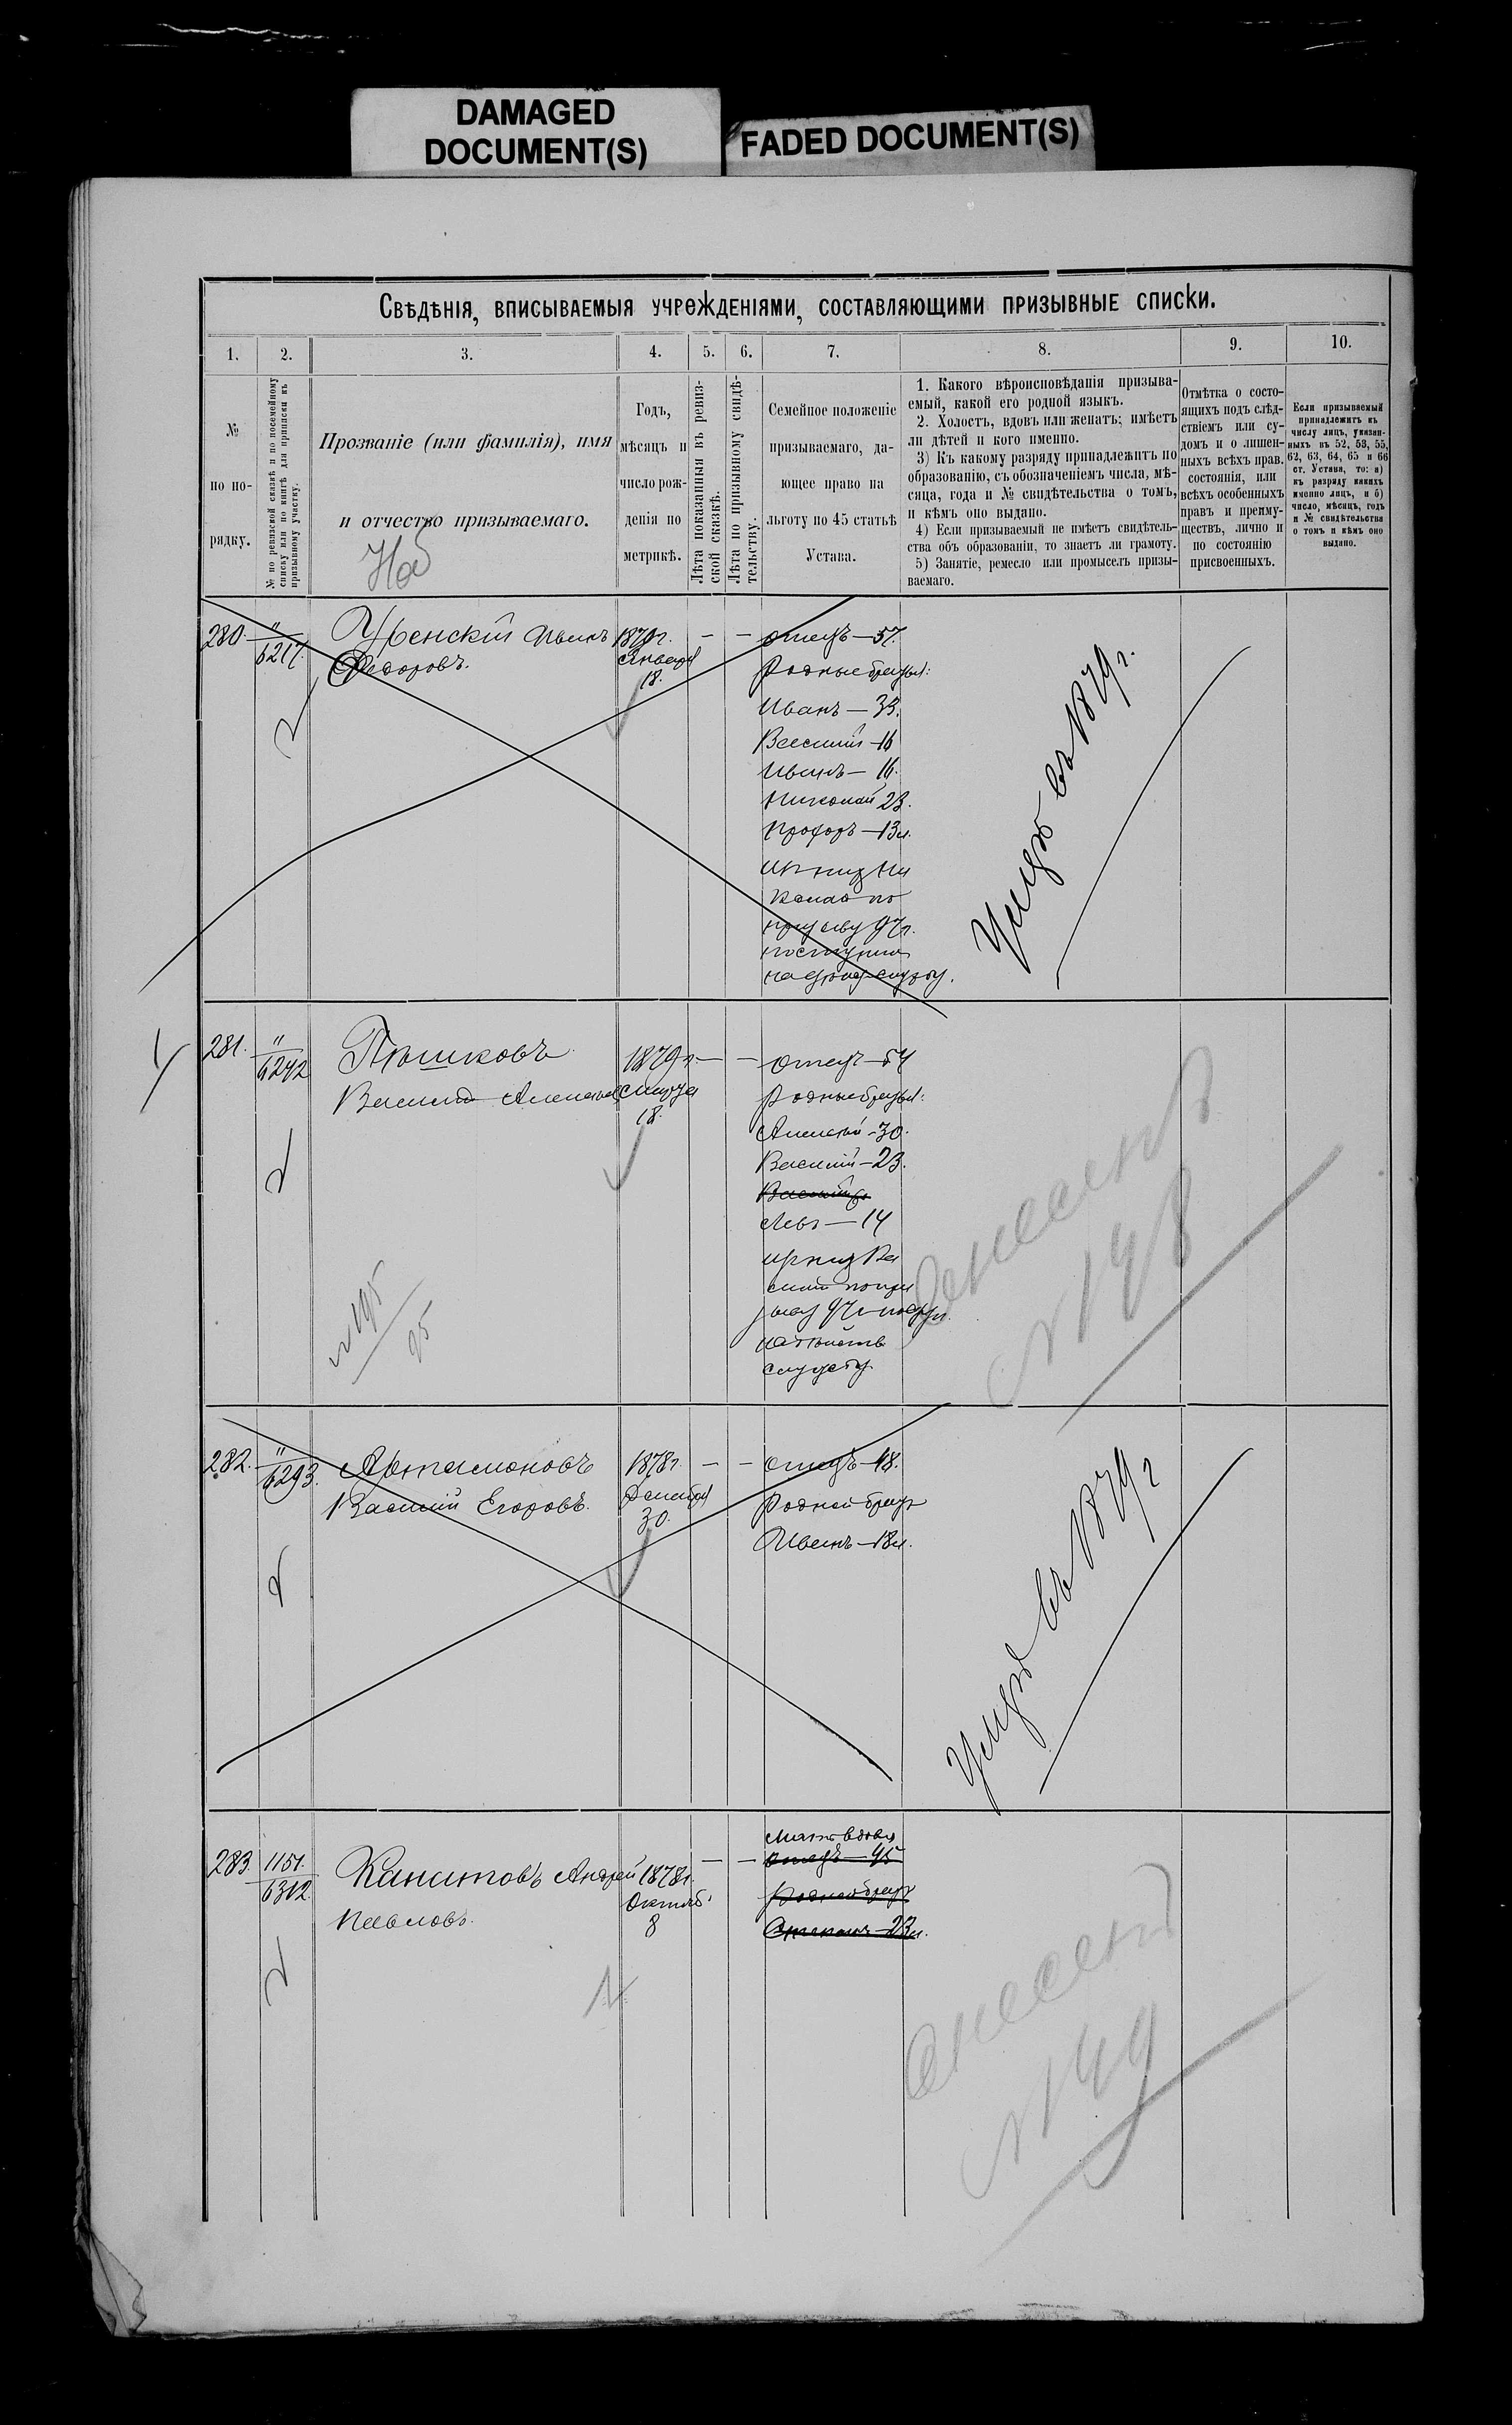 DAMAGED
DOCUMENT(S)
FADED DOCUMENT(S)
Свѣдѣнія, вписываемыя учрежденіями, составляющими призывные списки.
1.
2.
3.
4.
5.
6.
7.
8.
9.
10.
№
по по-
рядку.
№ по ревизской сказкѣ и по посемейному
списку или по книгѣ для приписки къ
призывному участку.
Прозваніе (или фамилія), имя
и отчество призываемаго.
Годъ,
мѣсяцъ и
число рож-
денія по
метрикѣ.
Лѣта показанныя въ ревиз-
ской сказкѣ.
Лѣта по призывному свидѣ-
тельству.
Семейное положеніе
призываемаго, да-
ющее право на
льготу по 45 статьѣ
Устава.
1. Какого вѣроисповѣданія призыва-
емый, какой его родной языкъ.
2. Холостъ, вдовъ или женатъ; имѣетъ
ли дѣтей и кого именно.
3) Къ какому разряду принадлежитъ по
образованію, съ обозначеніемъ числа, мѣ-
сяца, года и № свидѣтельства о томъ,
и кѣмъ оно выдано.
4) Если призываемый не имѣетъ свидѣтель-
ства объ образованіи, то знаетъ ли грамоту.
5) Занятіе, ремесло или промыселъ призы-
ваемаго.
Отмѣтка о состо-
ящихъ подъ слѣд-
ствіемъ или су-
домъ и о лишен-
ныхъ всѣхъ прав.
состоянія, или
всѣхъ особенныхъ
правъ и преиму-
ществъ, лично и
по состоянію
присвоенныхъ.
Если призываемый
принадлежитъ къ
числу лицъ, указан-
ныхъ въ 52, 53, 55,
62, 63, 64, 65 и 66
ст. Устава, то: а)
къ разряду какихъ
именно лицъ, и б)
число, мѣсяцъ, годъ
и № свидѣтельства
о томъ и кѣмъ оно
выдано.
280.
"
6217.
Иванъ
Ѳедоровъ.
1879г.
Января
18.
— —
отецъ — 57.
Родные братья:
Иванъ — 33.
Василій — 16
Иванъ — 16.
Николай 23.
Прохоръ — 13л.
Изъ нихъ Ни
колай по
призыву 97г.
поступилъ
на
службу.
Умеръ въ 1879г.
281.
"
6242
Пѣшковъ
Василій Алексѣевъ
1879г.
Марта
18.
— —
отецъ — 54
Родные братья:
Алексѣй — 30.
Василій — 23.
Левъ — 14
изъ нихъ Ва
силій по при
зыву 97г.
службу
внесенъ
№ 148
№ 195
95
282.
"
6293.
Артамоновъ
Василій Егоровъ.
1878г.
Декабря
30.
— —
отецъ — 48.
Родной братъ
Иванъ — 13л.
Умеръ въ 1879г
283.
1151.
6312.
Капитовъ Андрей
Павловъ.
1878г.
Октяб.
8
— —
Мать вдова
отецъ — 45
Родной братъ
Степанъ — 23л.
внесенъ
№ 149